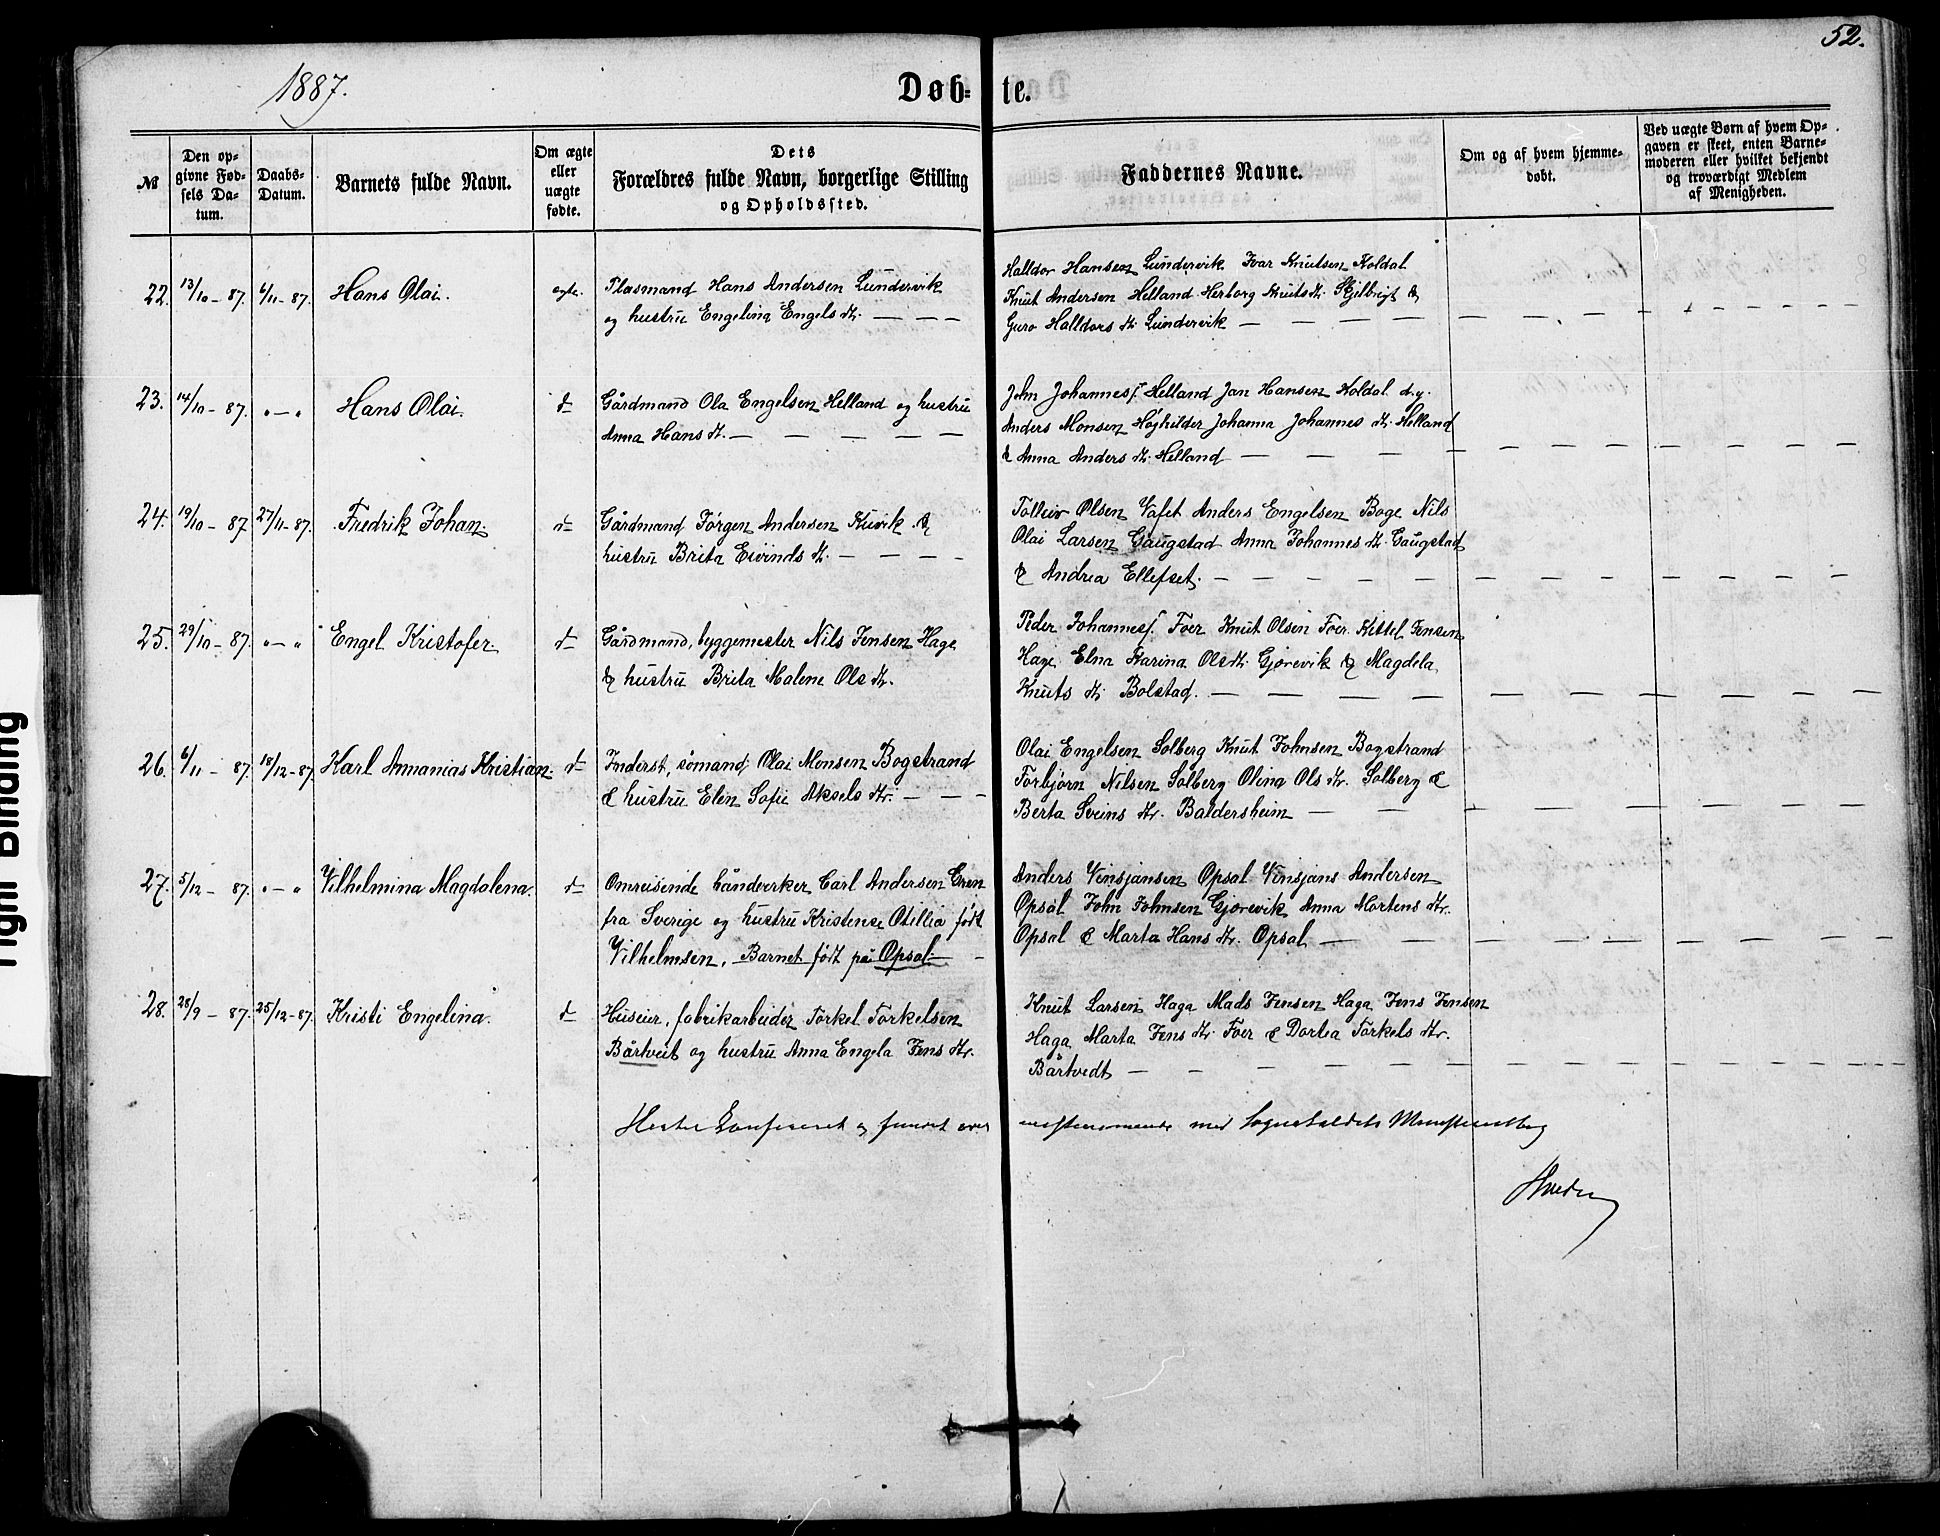 52.
1887.
Døb= te.
№
Den op=
givne Fød=
sels Da=
tum.
Daabs=
Datum.
Barnets fulde Navn.
Om ægte
eller
uægte
fødte.
Dets
Forældres fulde Navn, borgerlige Stilling
og Opholdssted.
Faddernes Navne.
Om og af hvem hjemme=
døbt.
Ved uægte Børn af hvem Op=
gaven er skeet, enten Barne=
moderen eller hvilket bekjendt
og troværdigt Medlem
af Menigheden.
22. 13/10 - 87. 6/11 - 87. Hans Olai. egte.
Plasmand Hans Andersen Lundervik
og hustru Engelina Engels dtr. — — —
Halldor Hansen Lundervik Ivar Knutsen Koldal
Knut Andersen Helland Herborg Knuts dtr. Skjelbreit &
Guro Halldors dtr. Lundervik —
23. 14/10 - 87. " - " Hans Olai. do
Gårdmand Ola Engelsen Helland og hustru
Anna Hans dtr. — — — — —
John Johanness. Helland Jan Hansen Koldal d.y.
Anders Monsen Højhilder Johanna Johannes dtr. Helland
& Anna Anders dtr. Helland —
24. 19/10 - 87 27/11 - 87. Fredrik Johan. do
Gårdmand Jørgen Andersen Kuvik &
hustru Brita Eivinds dtr. — — — —
Tolleiv Olsen Vafet Anders Engelsen Boge Nils
Olai Larsen Gaugstad Anna Johannes dtr. Gaugstad
& Andrea Ellefset. —
25. 29/10 - 87. " - " Engel Kristofer. do
Gårdmand, byggemester Nils Jensen Hage
& hustru Brita Malene Ols dtr.
Peder Johanness. Foer Knut Olsen Foer Kittel Jensen
Hage Elna Karina Ols dtr. Gjørevik & Magdela
Knuts dtr. Bolstad. —
26. 6/11 - 87. 18/12 - 87. Karl Annanias Kristian. do
Inderst, sømand Olai Monsen Bogstrand
& hustru Elen Sofie Aksels dtr. — — —
Olai Engelsen Solberg Knut Johnsen Bogstrand
Torbjørn Nilsen Solberg Olina Ols dtr. Solberg &
Berta Sveins dtr. Baldersheim —
27. 5/12 - 87. " - " Vilhelmina Magdalena. do
Omreisende håndverker Carl Andersen Gren
fra Sverige og hustru Kristense Otillia født
Vilhelmsen. Barnet født på Opsal. —
Anders Vinsjansen Opsal Vinsjans Andersen
Opsal John Johnsen Gjørevik Anna Mortens dtr.
Opsal & Marta Hans dtr. Opsal —
28. 28/9 - 87. 25/12 - 87. Kristi Engelina. do
Huseier, fabrikarbeider Torkel Torkelsen
Bårtveit og hustru Anna Engela Jens dtr.
Knut Larsen Haga Mads Jensen Haga Jens Jensen
Haga Marta Jens dtr. Foer & Dortea Torkels dtr.
Bårtvedt —
og med Sognekaldets
Tight Binding